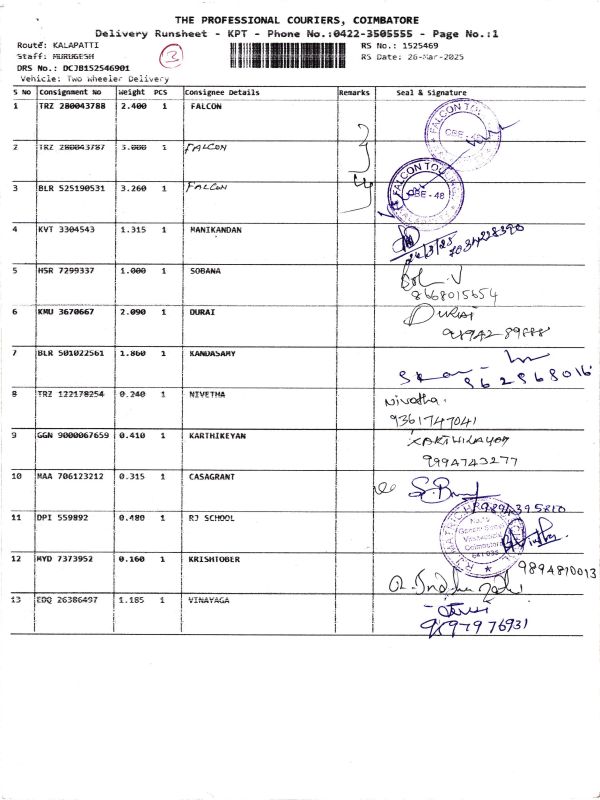 THE PROFESSIONAL COURIERS, COIMBATORE
Delivery Runsheet - KPT - Phone No.:0422-3505555 - Page No.:1
Route: KALAPATTI
3
RS No.: 1525469
Staff: MURUGESH
RS Date: 26-Mar-2025
DRS No.: DCJB152546901
Vehicle: Two Wheeler Delivery
S No Consignment No Weight PCS Consignee Details Remarks Seal & Signature
1 TRZ 280043788 2.400 1 FALCON
FALCON TO
CBE - 48
2 TRZ 280043787 3.000 1 FALCON
3 BLR 525190531 3.260 1 FALCON
FALCON TO
CBE - 48
4 KVT 3304543 1.315 1 MANIKANDAN
26/3/25
5 HSR 7299337 1.000 1 SOBANA
8668015654
6 KMU 3670667 2.090 1 DURAI
DURAI
7 BLR 501022561 1.860 1 KANDASAMY
8 TRZ 122178254 0.240 1 NIVETHA
Nivetha.
9361747041
9 GGN 9000067659 0.410 1 KARTHIKEYAN
9994743277
10 MAA 706123212 0.315 1 CASAGRANT
9894395810
11 DPI 559892 0.480 1 RJ SCHOOL
Coimbatore
641 035
12 MYD 7373952 0.160 1 KRISHTOBER
9894810013
13 EDQ 26386497 1.185 1 VINAYAGA
9597976931